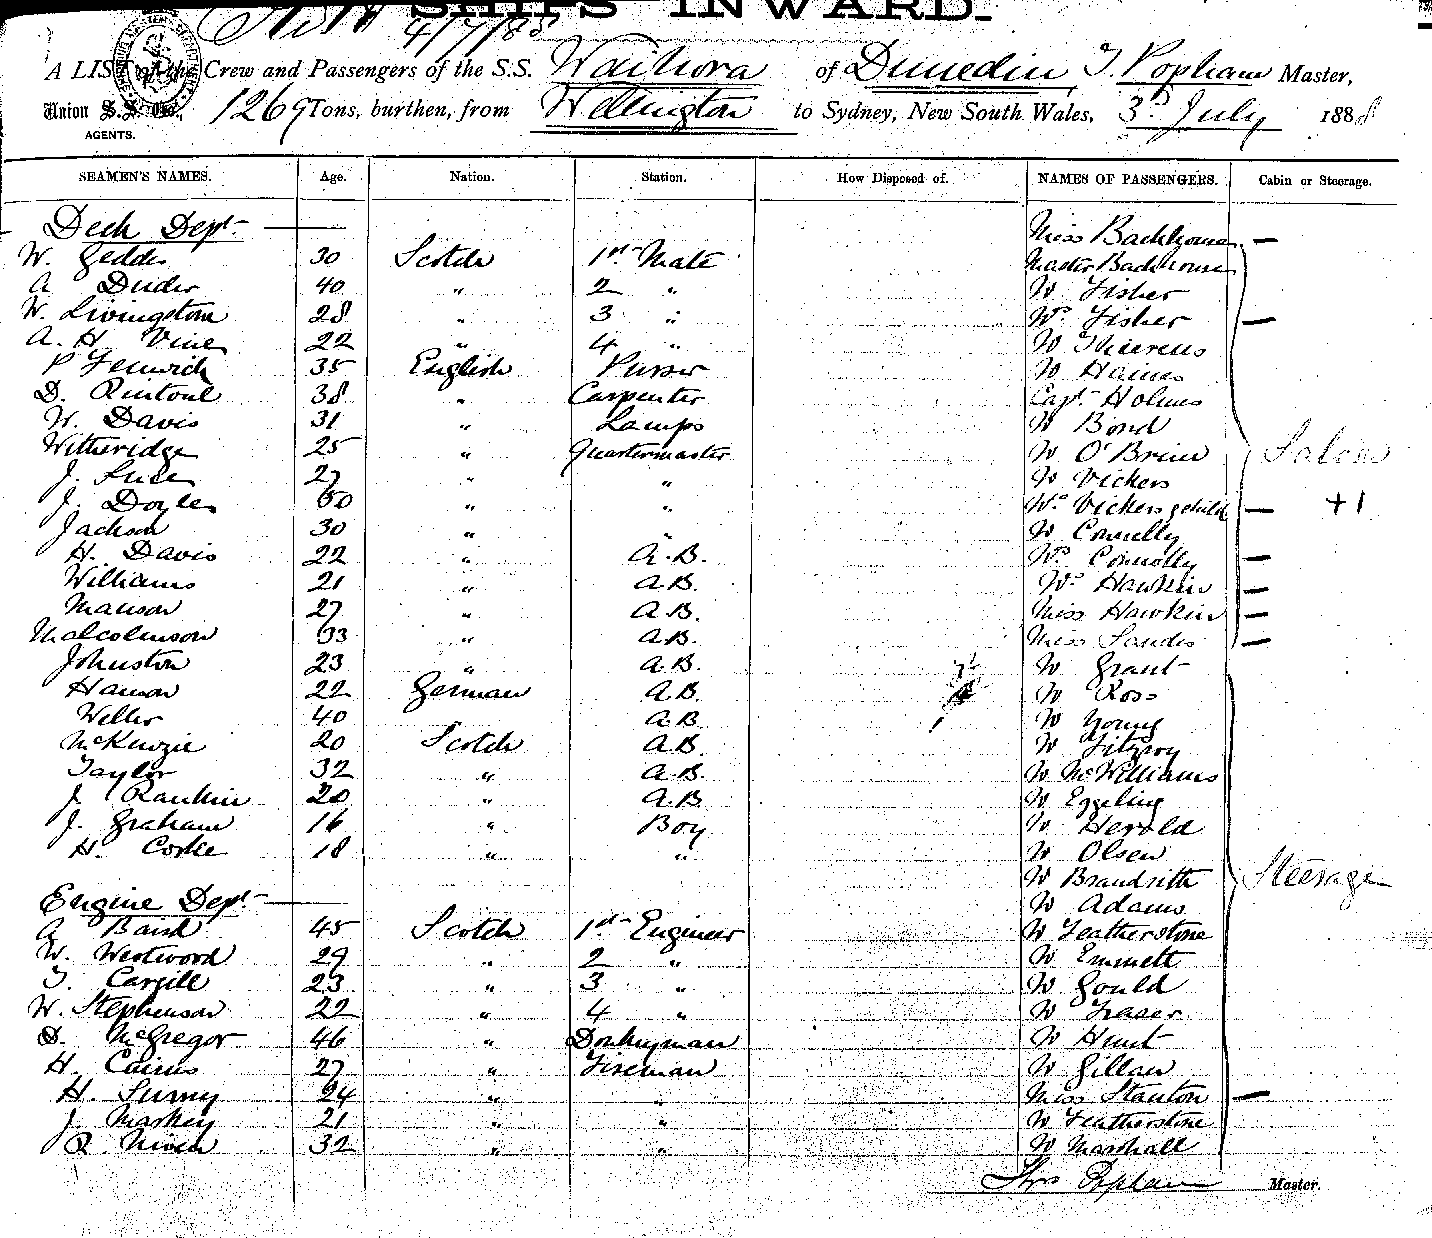 SHIPS INWARD.
4/7/88
A LIST of the Crew and Passengers of the S.S. Waihora of Dunedin, T. Popham Master,
Union S.S. Co., 1269 Tons, burthen, from Wellington to Sydney, New South Wales, 3d July 1888
AGENTS.
SEAMEN'S NAMES. Age. Nation. Station. How Disposed of. NAMES OF PASSENGERS. Cabin or Steerage.
Deck Dept Miss Backhouse —
W. Geddes 30 Scotch 1st Mate Master Backhouse
A Duder 40 " 2 " Mr Fisher
W. Livingstone 28 " 3 " Mrs Fisher —
A. H Vine 22 " 4 " Mr
P Fenwick 35 English Purser Mr Haines
D. Rintoul 38 " Carpenter Capt. Holmes
W. Davis 31 " Lamps Mr Bond
Witheridge 25 " Quartermaster Mr O'Brien Saloon
J. 27 " " Mr Vickers
J. Doyle 50 " " Mrs Vickers & child — +1
Jackson 30 " " Mr Connolly
H. Davis 22 " A.B. Mrs Connolly —
Williams 21 " A.B. Mrs Hawkin —
Manson 27 " A.B. Miss Hawkin —
Malcolmson 33 " A.B. Miss Sandes —
Johnston 23 " A.B. Mr Grant
Hanson 22 German A.B. Mr Ross
Weller 40 A.B Mr Young
McKenzie 20 Scotch A.B. Mr Fitzroy
Taylor 32 " A.B. Mr McWilliams
J Rankin 20 " A.B Mr Eggeling
J. Graham 16 " Boy Mr Herold
H. Corke 18 " " Mr Olsen
Mr Brandrith Steerage
Engine Dept Mr Adams
A Baird 45 Scotch 1st Engineer Mr Featherstone
W. Westwood 29 " 2 " Mr Emmett
T. Cargill 23 " 3 " Mr Gould
W. Stephenson 22 " 4 " Mr Fraser
D. McGregor 46 " Donkeyman Mr Hunt
H. Cairns 27 " Fireman Mr Gillan
H. 24 " " Miss Stanton —
J. Markey 21 " " Mr Featherstone
R. Niven 32 " " Mr Marshall
Thos Popham Master.